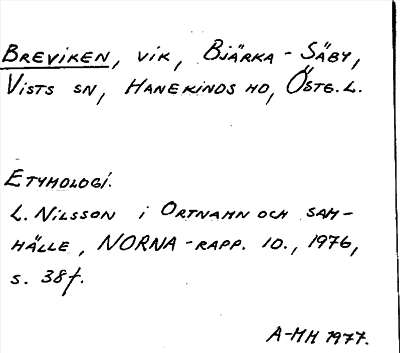 BREVIKEN, VIK, BJÄRKA-SÄBY,
VISTS SN, HANEKINDS HD, ÖSTG.L.
ETYMOLOGI.
L. NILSSON i ORTNAMN OCH SAM-
HÄLLE, NORNA-RAPP. 10., 1976,
s. 38f.
A-MH 1977.